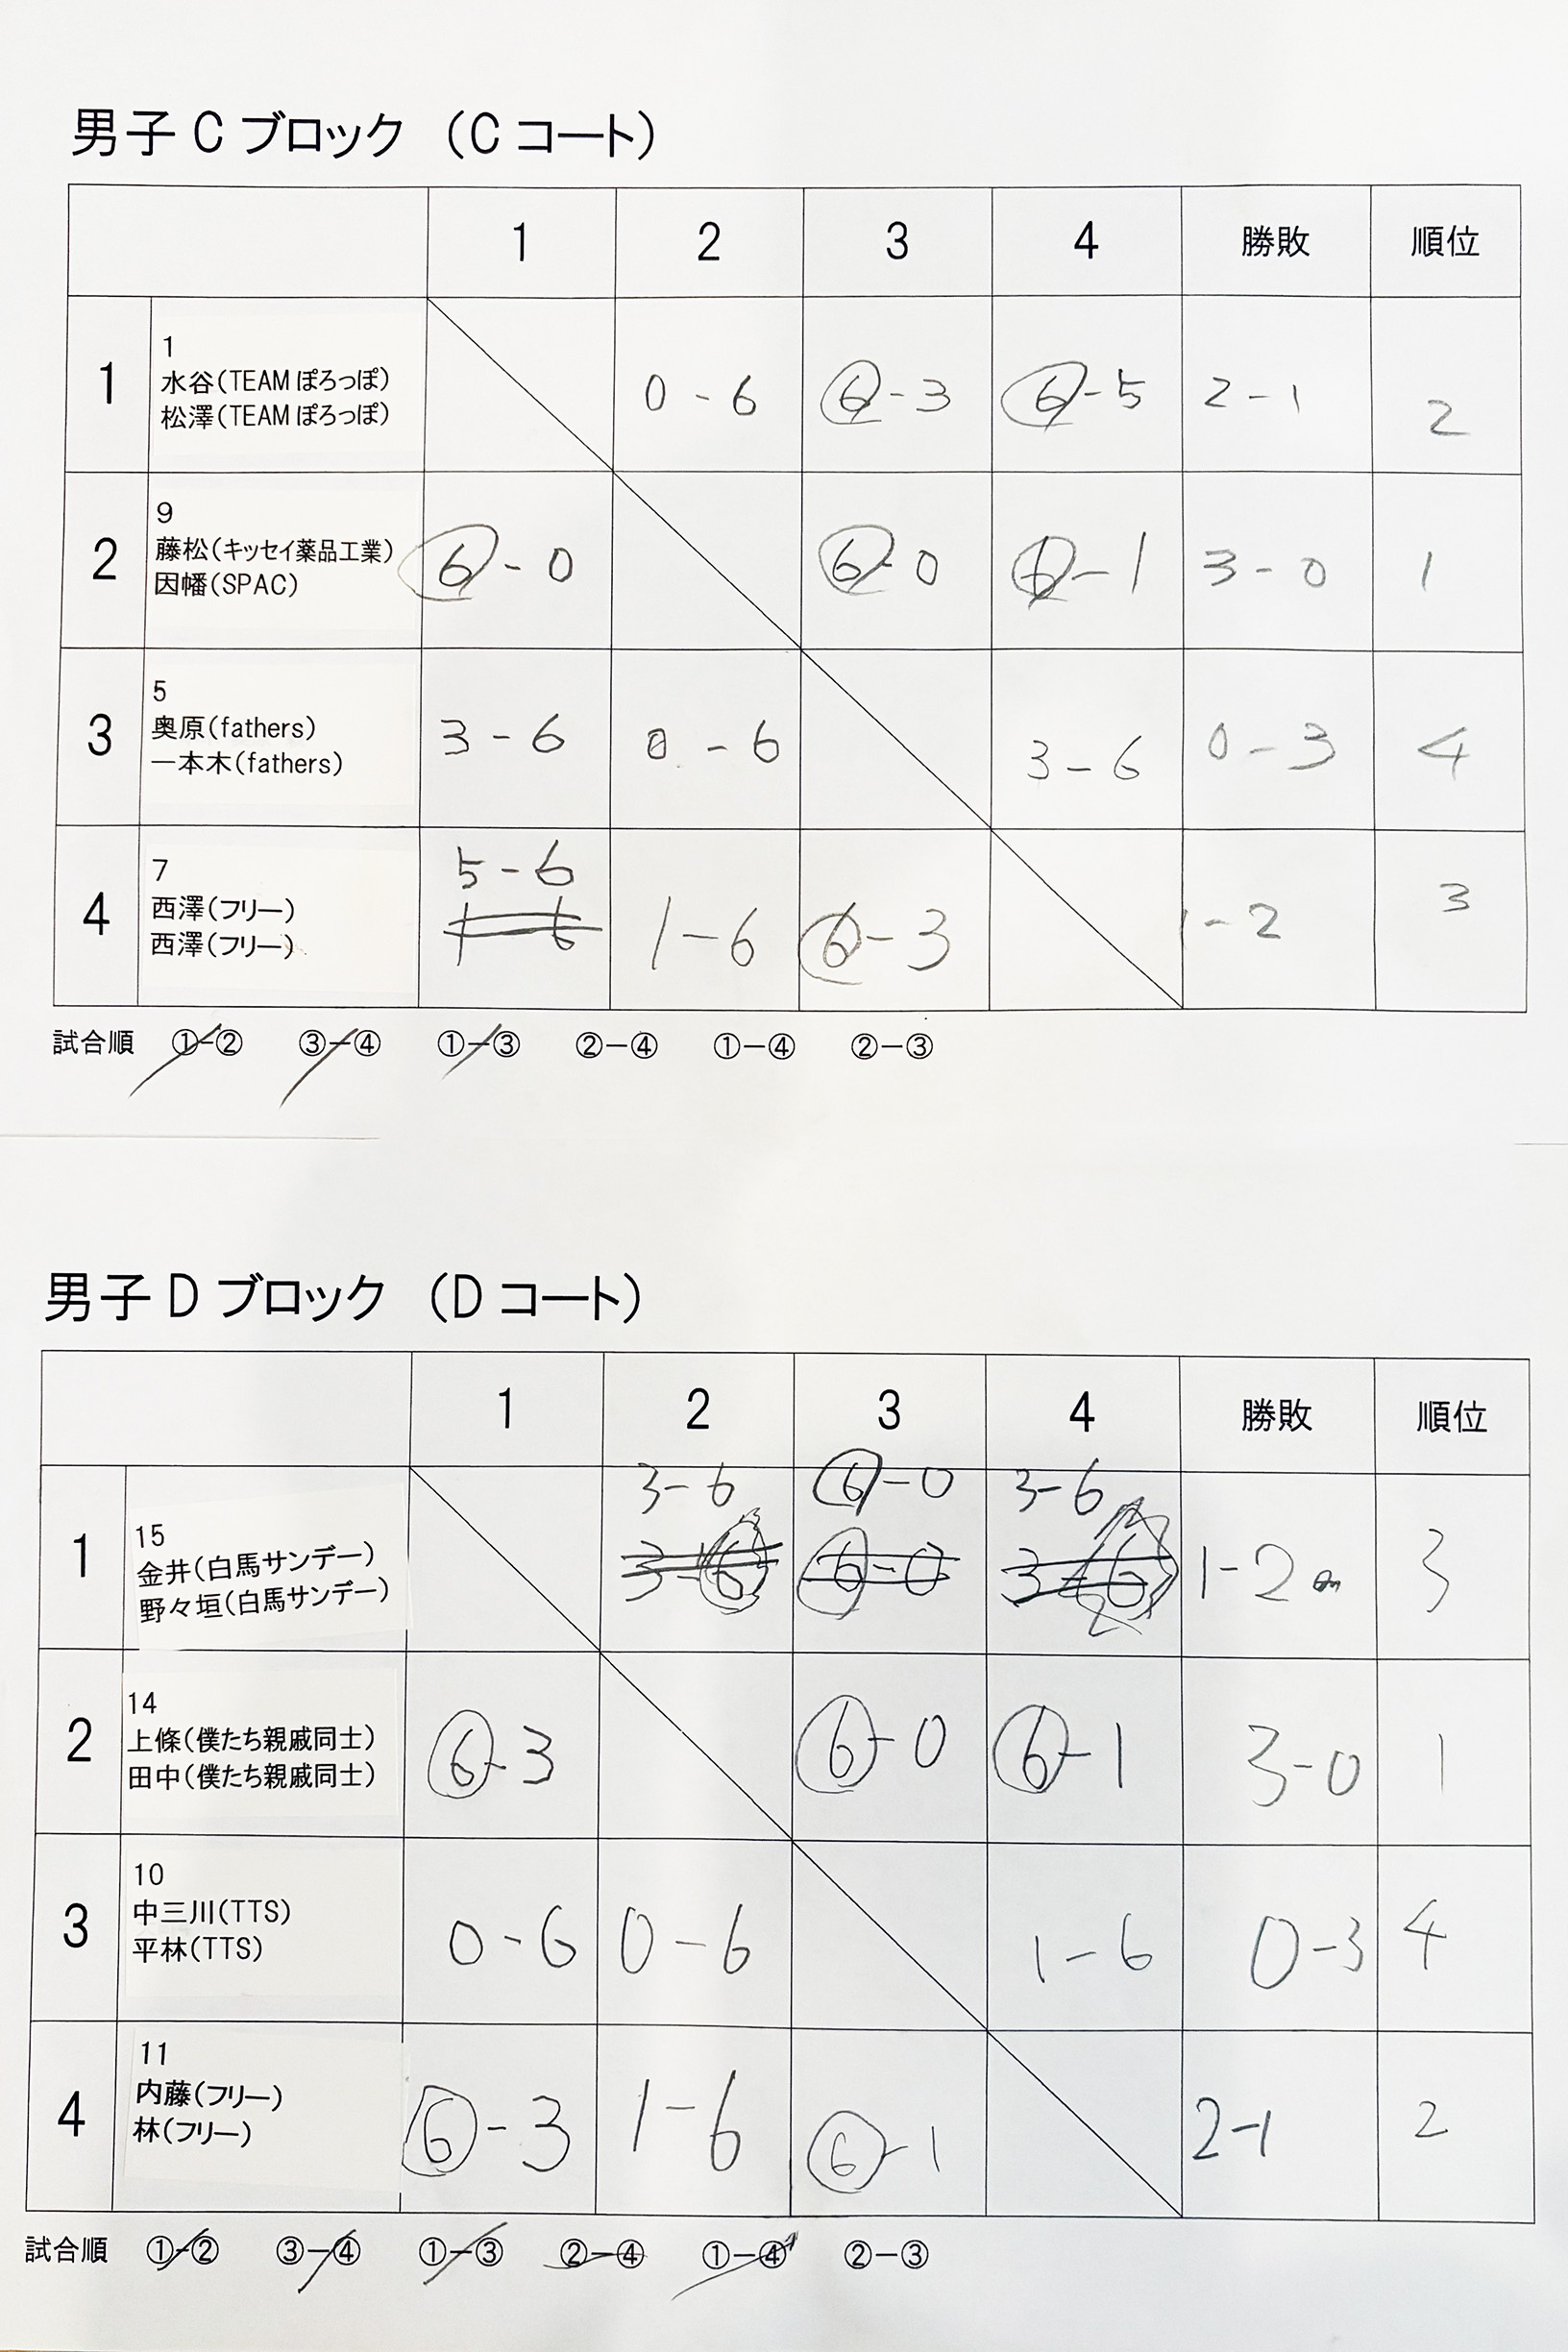 男子 C ブロック （C コート）
1 2 3 4 勝敗 順位
1
1
水谷(TEAM ぽろっぽ)
松澤(TEAM ぽろっぽ)
0 - 6 6 - 3 6 - 5 2 - 1 2
2
9
藤松(キッセイ薬品工業)
因幡(SPAC)
6 - 0 6 - 0 6 - 1 3 - 0 1
3
5
奥原(fathers)
一本木(fathers)
3 - 6 0 - 6 3 - 6 0 - 3 4
4
7
西澤(フリー)
西澤(フリー)
5 - 6
1 6 1 - 6 6 - 3 1 - 2 3
試合順 ①－② ③－④ ①－③ ②－④ ①－④ ②－③
男子 D ブロック （D コート）
1 2 3 4 勝敗 順位
1
15
金井(白馬サンデー)
野々垣(白馬サンデー)
3 - 6 6 - 0 3 - 6
3 - 6 6 - 0 3 - 6 1 - 2 3
2
14
上條(僕たち親戚同士)
田中(僕たち親戚同士)
6 - 3 6 - 0 6 - 1 3 - 0 1
3
10
中三川(TTS)
平林(TTS)
0 - 6 0 - 6 1 - 6 0 - 3 4
4
11
内藤(フリー)
林(フリー)
6 - 3 1 - 6 6 - 1 2 - 1 2
試合順 ①－② ③－④ ①－③ ②－④ ①－④ ②－③